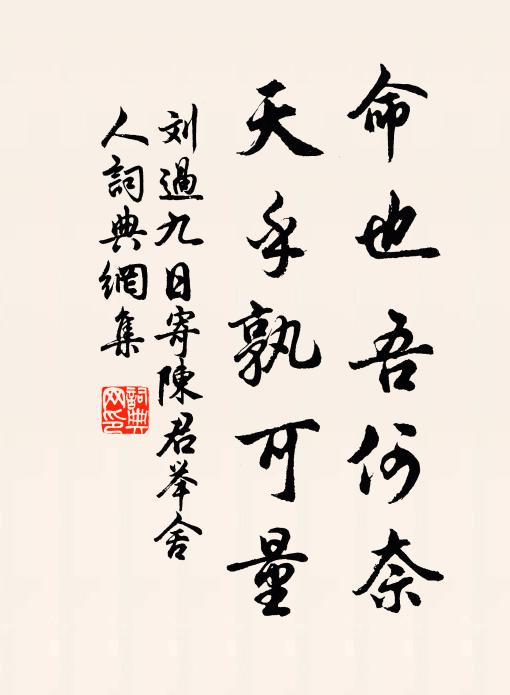 命也吾何奈
天乎孰可量
刘過九日寄陳君举舍
人詞典網集
詞典网印